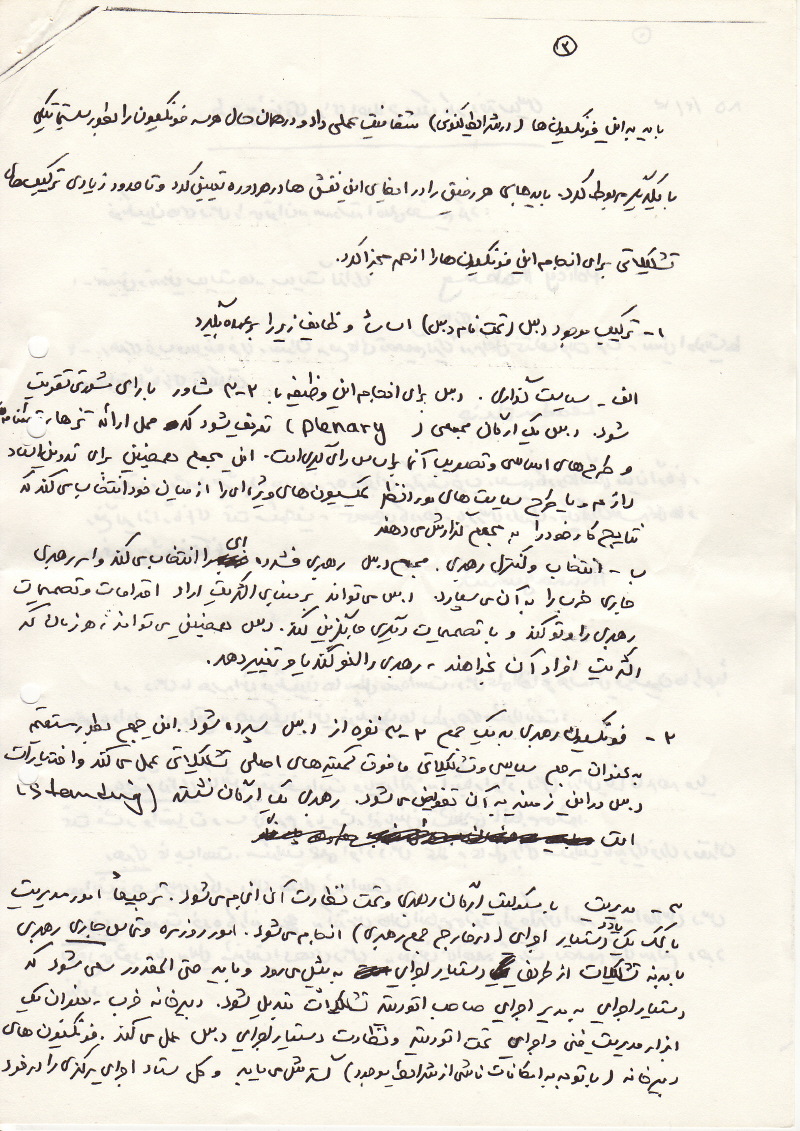 ۲
باید به این فونکسیون‌ها (در شرایط کنونی) شفافیت عملی داد و در همان حال هر سه فونکسیون را بطور سیستماتیکی
با یکدیگر مربوط کرد. باید جای هر رفیق را در ایفای این نقش‌ها در هر دوره تعیین کرد و تا حدود زیادی ترکیب‌های
تشکیلاتی برای انجام این فونکسیون‌ها را از هم مجزا کرد.
۱- ترکیب موجود د.س (تحت نام د.س) اساساً وظایف زیر را بر عهده بگیرد
الف - سیاست گذاری. د.س برای انجام این وظیفه با ۲-۳ مشاور با رای مشورتی تقویت
شود. د.س یک ارگان مجمعی (plenary) تعریف شود که محل ارائه تزها،
و طرح‌های اساسی و تصویب آنها بر اساس رای‌گیری است. این مجمع همچنین برای تدوین اسناد
لازم و یا طرح سیاست‌های مورد نظر کمیسیون‌های ویژه‌ای را از میان خود انتخاب می‌کند که
نتایج کار خود را به مجمع گزارش می‌دهند
ب - انتخاب و کنترل رهبری. مجمع د.س رهبری فشرده‌ای را انتخاب می‌کند و امر رهبری
جاری حزب را به آن می‌سپارد. د.س می‌تواند بر مبنای اکثریت آراء اقدامات و تصمیمات
رهبری را وتو کند و با تصمیمات دیگری جایگزین کند. د.س همچنین می‌تواند، هر زمان که
اکثریت افراد آن بخواهند، رهبری را لغو کند یا تغییر دهد.
۲- فونکسیون رهبری به یک جمع ۲-۳ نفره از د.س سپرده شود. این جمع بطور مستقیم
به عنوان مرجع سیاسی و تشکیلاتی مافوق کمیته‌های اصلی تشکیلاتی عمل می‌کند و اختیارات
د.س در این زمینه به آن تفویض می‌شود. رهبری یک ارگان نشسته (standing)
است
۳- مدیریت با مسئولیت ارگان رهبری و تحت نظارت آن انجام می‌شود. ترجیحاً امور مدیریت
با کمک یک دستیار اجرایی (در خارج جمع رهبری) انجام می‌شود. امور روزمره و تماس جاری رهبری
با بدنه تشکیلات از طریق دستیار اجرایی به پیش می‌رود و باید حتی‌المقدور سعی شود که
دستیار اجرایی به مدیر اجرایی صاحب اتوریته تشکیلات تبدیل شود. دبیرخانه حزب بعنوان یک
ابزار مدیریت فنی و اجرایی تحت اتوریته و نظارت دستیار اجرایی د.س عمل می‌کند. فونکسیون‌های
دبیرخانه (با توجه به امکانات ناشی از شرایط موجود) گسترش می‌یابد و کل ستاد اجرایی مرکزی را در خود